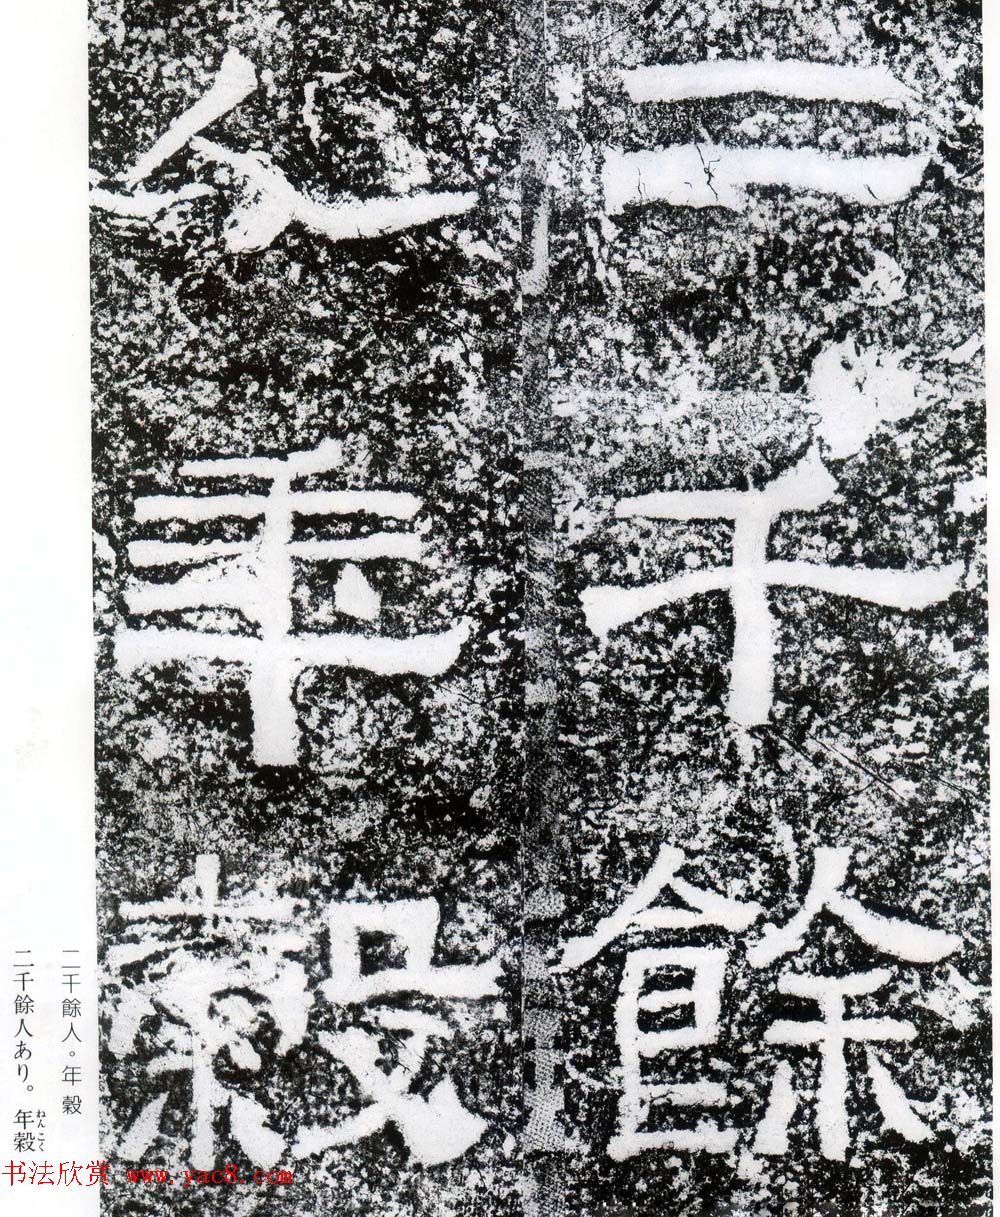 二千餘
人年穀
二千餘人。年穀
二千餘人あり。年穀
ねんこく
书法欣赏 www.yac8.com